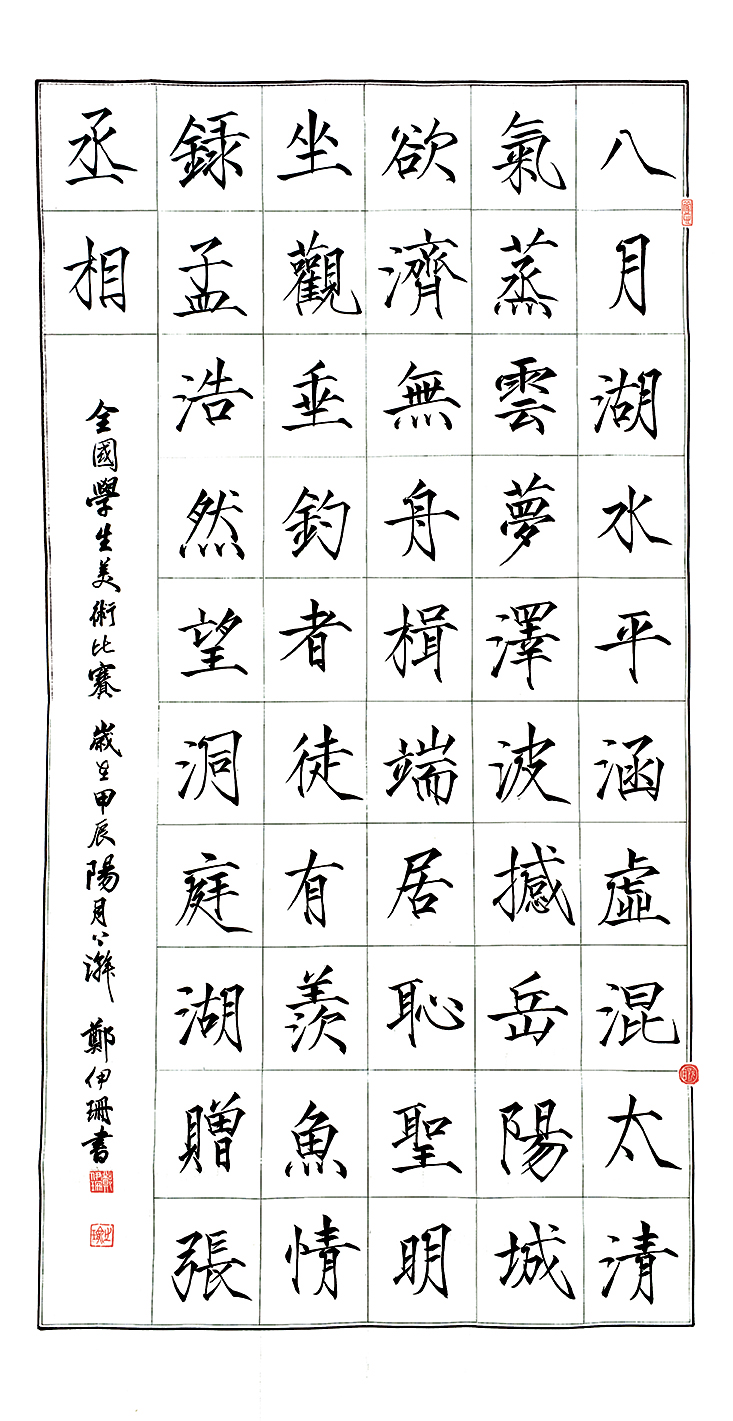 八月湖水平涵虛混太清
氣蒸雲夢澤波撼岳陽城
欲濟無舟楫端居恥聖明
坐觀垂釣者徒有羨魚情
録孟浩然望洞庭湖贈張
丞相
全國學生美術比賽 歲旦甲辰陽月 鄭伊珊书